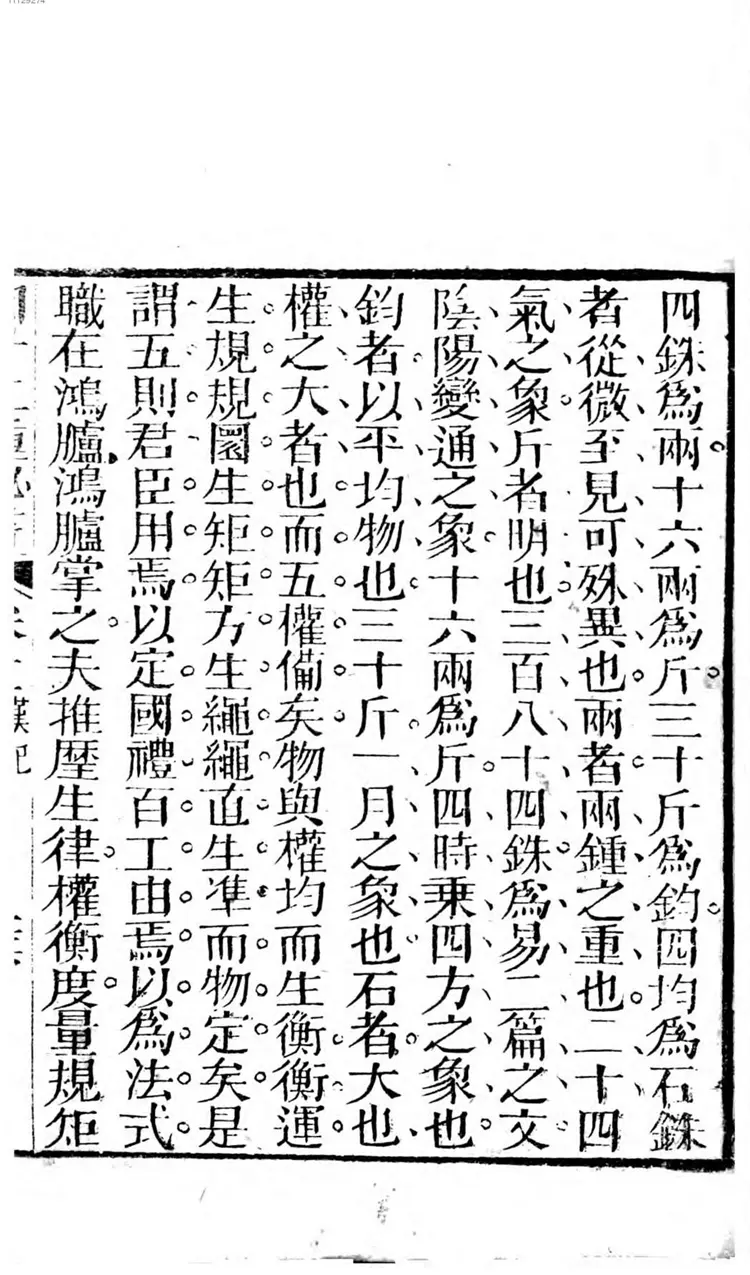 11129274
四銖爲兩十六兩爲斤三十斤爲鈞四均爲石銖
者從微至見可殊異也兩者兩鍾之重也二十四
氣之象斤者明也三百八十四銖爲易二篇之文
陰陽變通之象十六兩爲斤四時乘四方之象也
鈞者以平均物也三十斤一月之象也石者大也
權之大者也而五權備矣物與權均而生衡衡運
生規規圜生矩矩方生繩繩直生準而物定矣是
謂五則君臣用焉以定國禮百工由焉以爲法式
職在鴻臚鴻臚掌之夫推歷生律權衡度量規矩
漢記